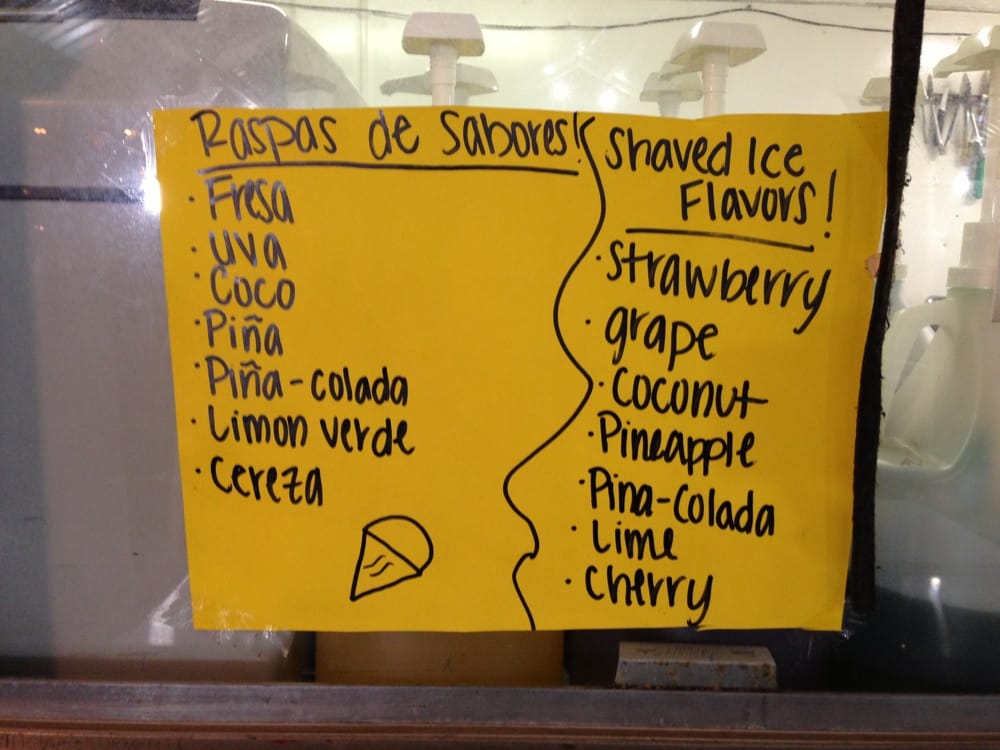 Raspas de Sabores!
· Fresa
· uva
· Coco
· Piña
· Piña-colada
· Limon verde
· Cereza
Shaved Ice
Flavors!
· Strawberry
· grape
· Coconut
· Pineapple
· Pina-Colada
· Lime
· Cherry